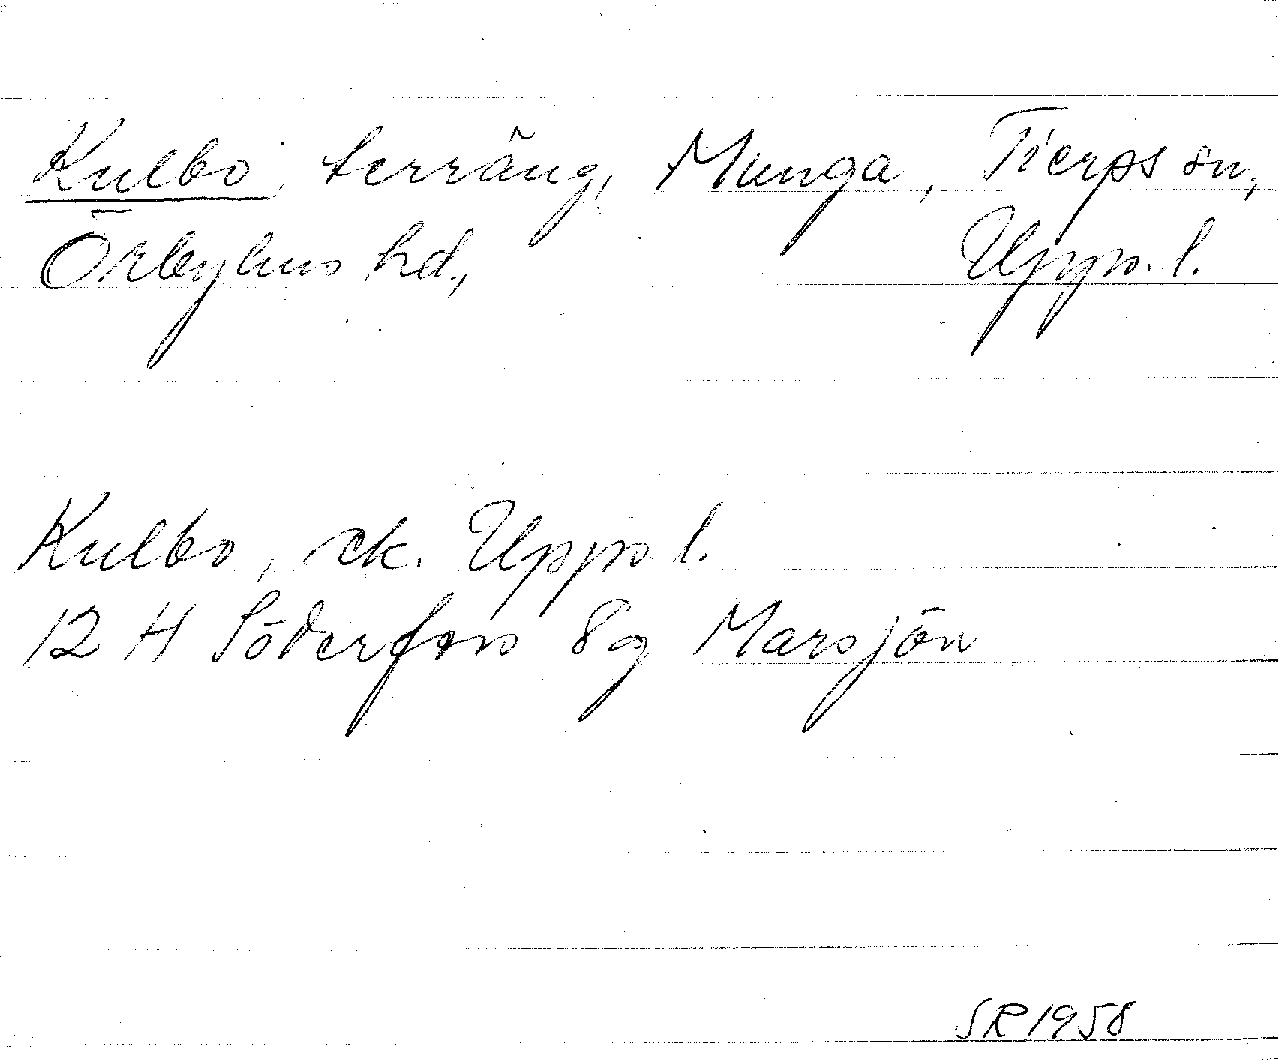 Kulbo, terräng, Munga, Tierps sn,
Örbyhus hd, Upps. l.
Kulbo, ek. Upps l.
12 H Söderfors 8g Marsjön
SR 1958